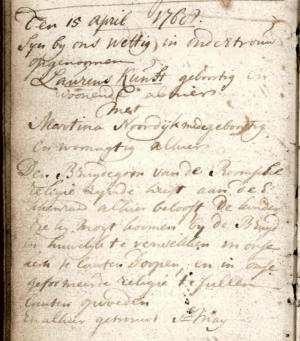 Den 15 april 1760.
Syn by ons wettig in ondertrouw
opgenomen
Laurens Kunst geboortig en
woonende alhier
Met
Martina Noordijk mede geboortig
en woonagtig alhier
Den Bruydegom van de Roomsche
religie zynde heeft aan de E
kerkenraad alhier belooft de kinderen
die hy mogt komen by de Bruyd
in huwelyk te verwekken in onse
kerk te laaten Doopen, en in onse
gereformeerde religie te sullen
laaten opvoeden
En alhier getrouwt May